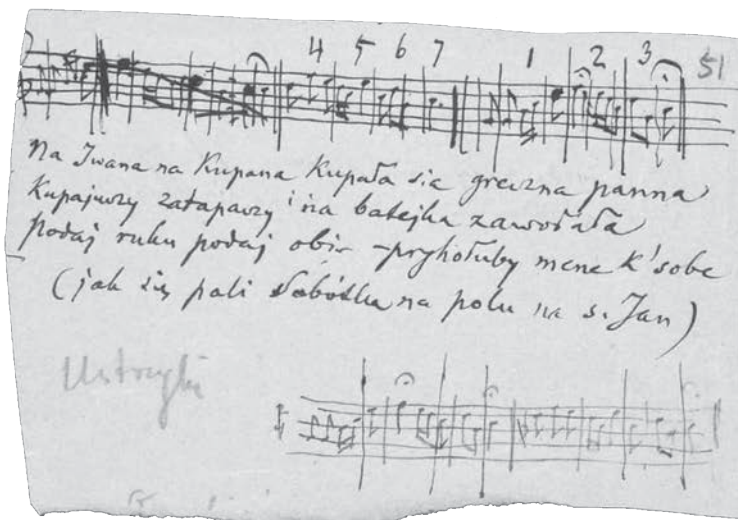 4 5 6 7 1 2 3 51
Na Iwana na Kupana Kupała się greczna panna
Kupajuczy zatapaczy i na batejka zawołała
podaj ruku podaj obie – pryhołuby mene k'sobe
(jak się pali Sobótka na polu na s. Jan)
Ustrzyki